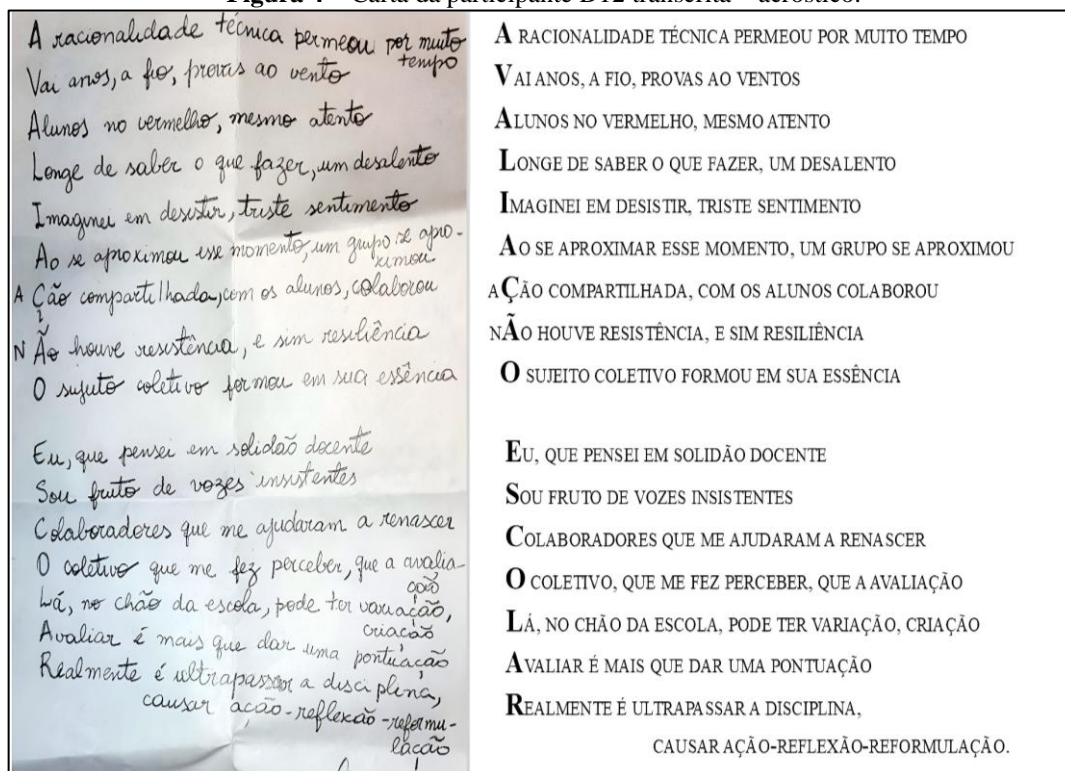 Figura 4 – Carta da participante D12 transcrita – acróstico.
A racionalidade técnica permeou por muito
tempo
Vai anos, a fio, provas ao vento
Alunos no vermelho, mesmo atento
Longe de saber o que fazer, um desalento
Imaginei em desistir, triste sentimento
Ao se aproximou esse momento, um grupo se apro-
ximou
A Ção compartilhada, com os alunos, colaborou
N Ão houve resistência, e sim resiliência
O sujeito coletivo formou em sua essência
Eu, que pensei em solidão docente
Sou fruto de vozes insistentes
Colaboradores que me ajudaram a renascer
O coletivo que me fez perceber, que a avalia-
ção
Lá, no chão da escola, pode ter variação,
criação
Avaliar é mais que dar uma pontuação
Realmente é ultrapassar a disciplina,
causar ação-reflexão-reformu-
lação
A RACIONALIDADE TÉCNICA PERMEOU POR MUITO TEMPO
VAI ANOS, A FIO, PROVAS AO VENTOS
ALUNOS NO VERMELHO, MESMO ATENTO
LONGE DE SABER O QUE FAZER, UM DESALENTO
IMAGINEI EM DESISTIR, TRISTE SENTIMENTO
AO SE APROXIMAR ESSE MOMENTO, UM GRUPO SE APROXIMOU
AÇÃO COMPARTILHADA, COM OS ALUNOS COLABOROU
NÃO HOUVE RESISTÊNCIA, E SIM RESILIÊNCIA
O SUJEITO COLETIVO FORMOU EM SUA ESSÊNCIA
EU, QUE PENSEI EM SOLIDÃO DOCENTE
SOU FRUTO DE VOZES INSISTENTES
COLABORADORES QUE ME AJUDARAM A RENASCER
O COLETIVO, QUE ME FEZ PERCEBER, QUE A AVALIAÇÃO
LÁ, NO CHÃO DA ESCOLA, PODE TER VARIAÇÃO, CRIAÇÃO
AVALIAR É MAIS QUE DAR UMA PONTUAÇÃO
REALMENTE É ULTRAPASSAR A DISCIPLINA,
CAUSAR AÇÃO-REFLEXÃO-REFORMULAÇÃO.